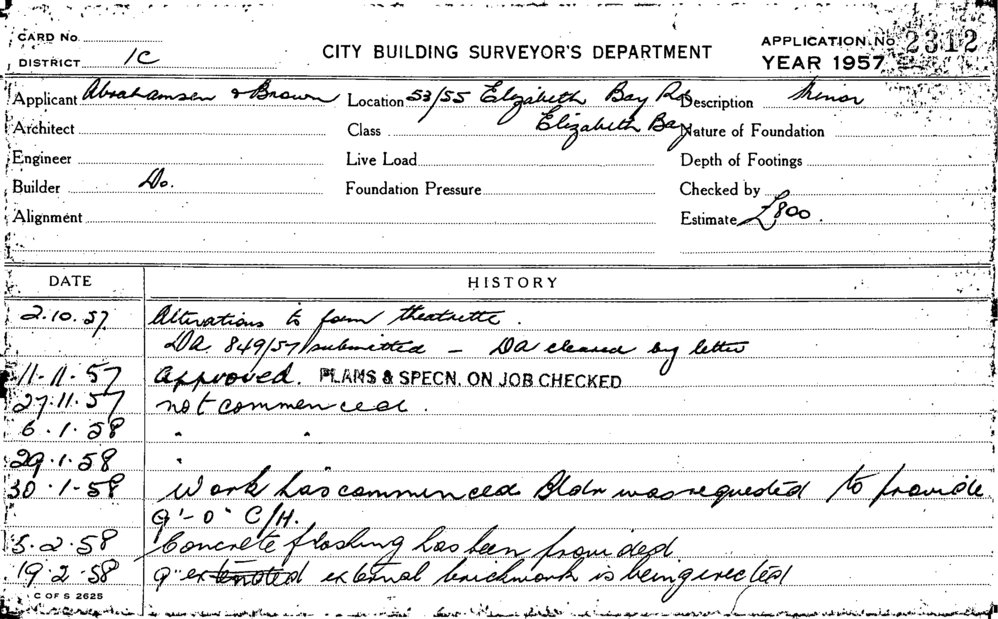 CARD No.
DISTRICT 1C
CITY BUILDING SURVEYOR'S DEPARTMENT
APPLICATION No. 2312
YEAR 1957
Applicant Abrahamsen & Brown Location 53/55 Elizabeth Bay Rd Description Minor
Architect Class Elizabeth Bay Nature of Foundation
Engineer Live Load Depth of Footings
Builder Do. Foundation Pressure Checked by
Alignment Estimate £800.
DATE HISTORY
2.10.57 Alterations to form theatrette.
DA. 849/57 submitted - DA cleared by letter
11.11.57 Approved. PLANS & SPECN. ON JOB CHECKED
27.11.57 not commenced.
6.1.58 " "
29.1.58 "
30.1.58 Work has commenced Bldr was requested to provide
9'-0" C/H.
5.2.58 Concrete flashing has been provided
19.2.58 9" external brickwork is being erected
C OF S 2625